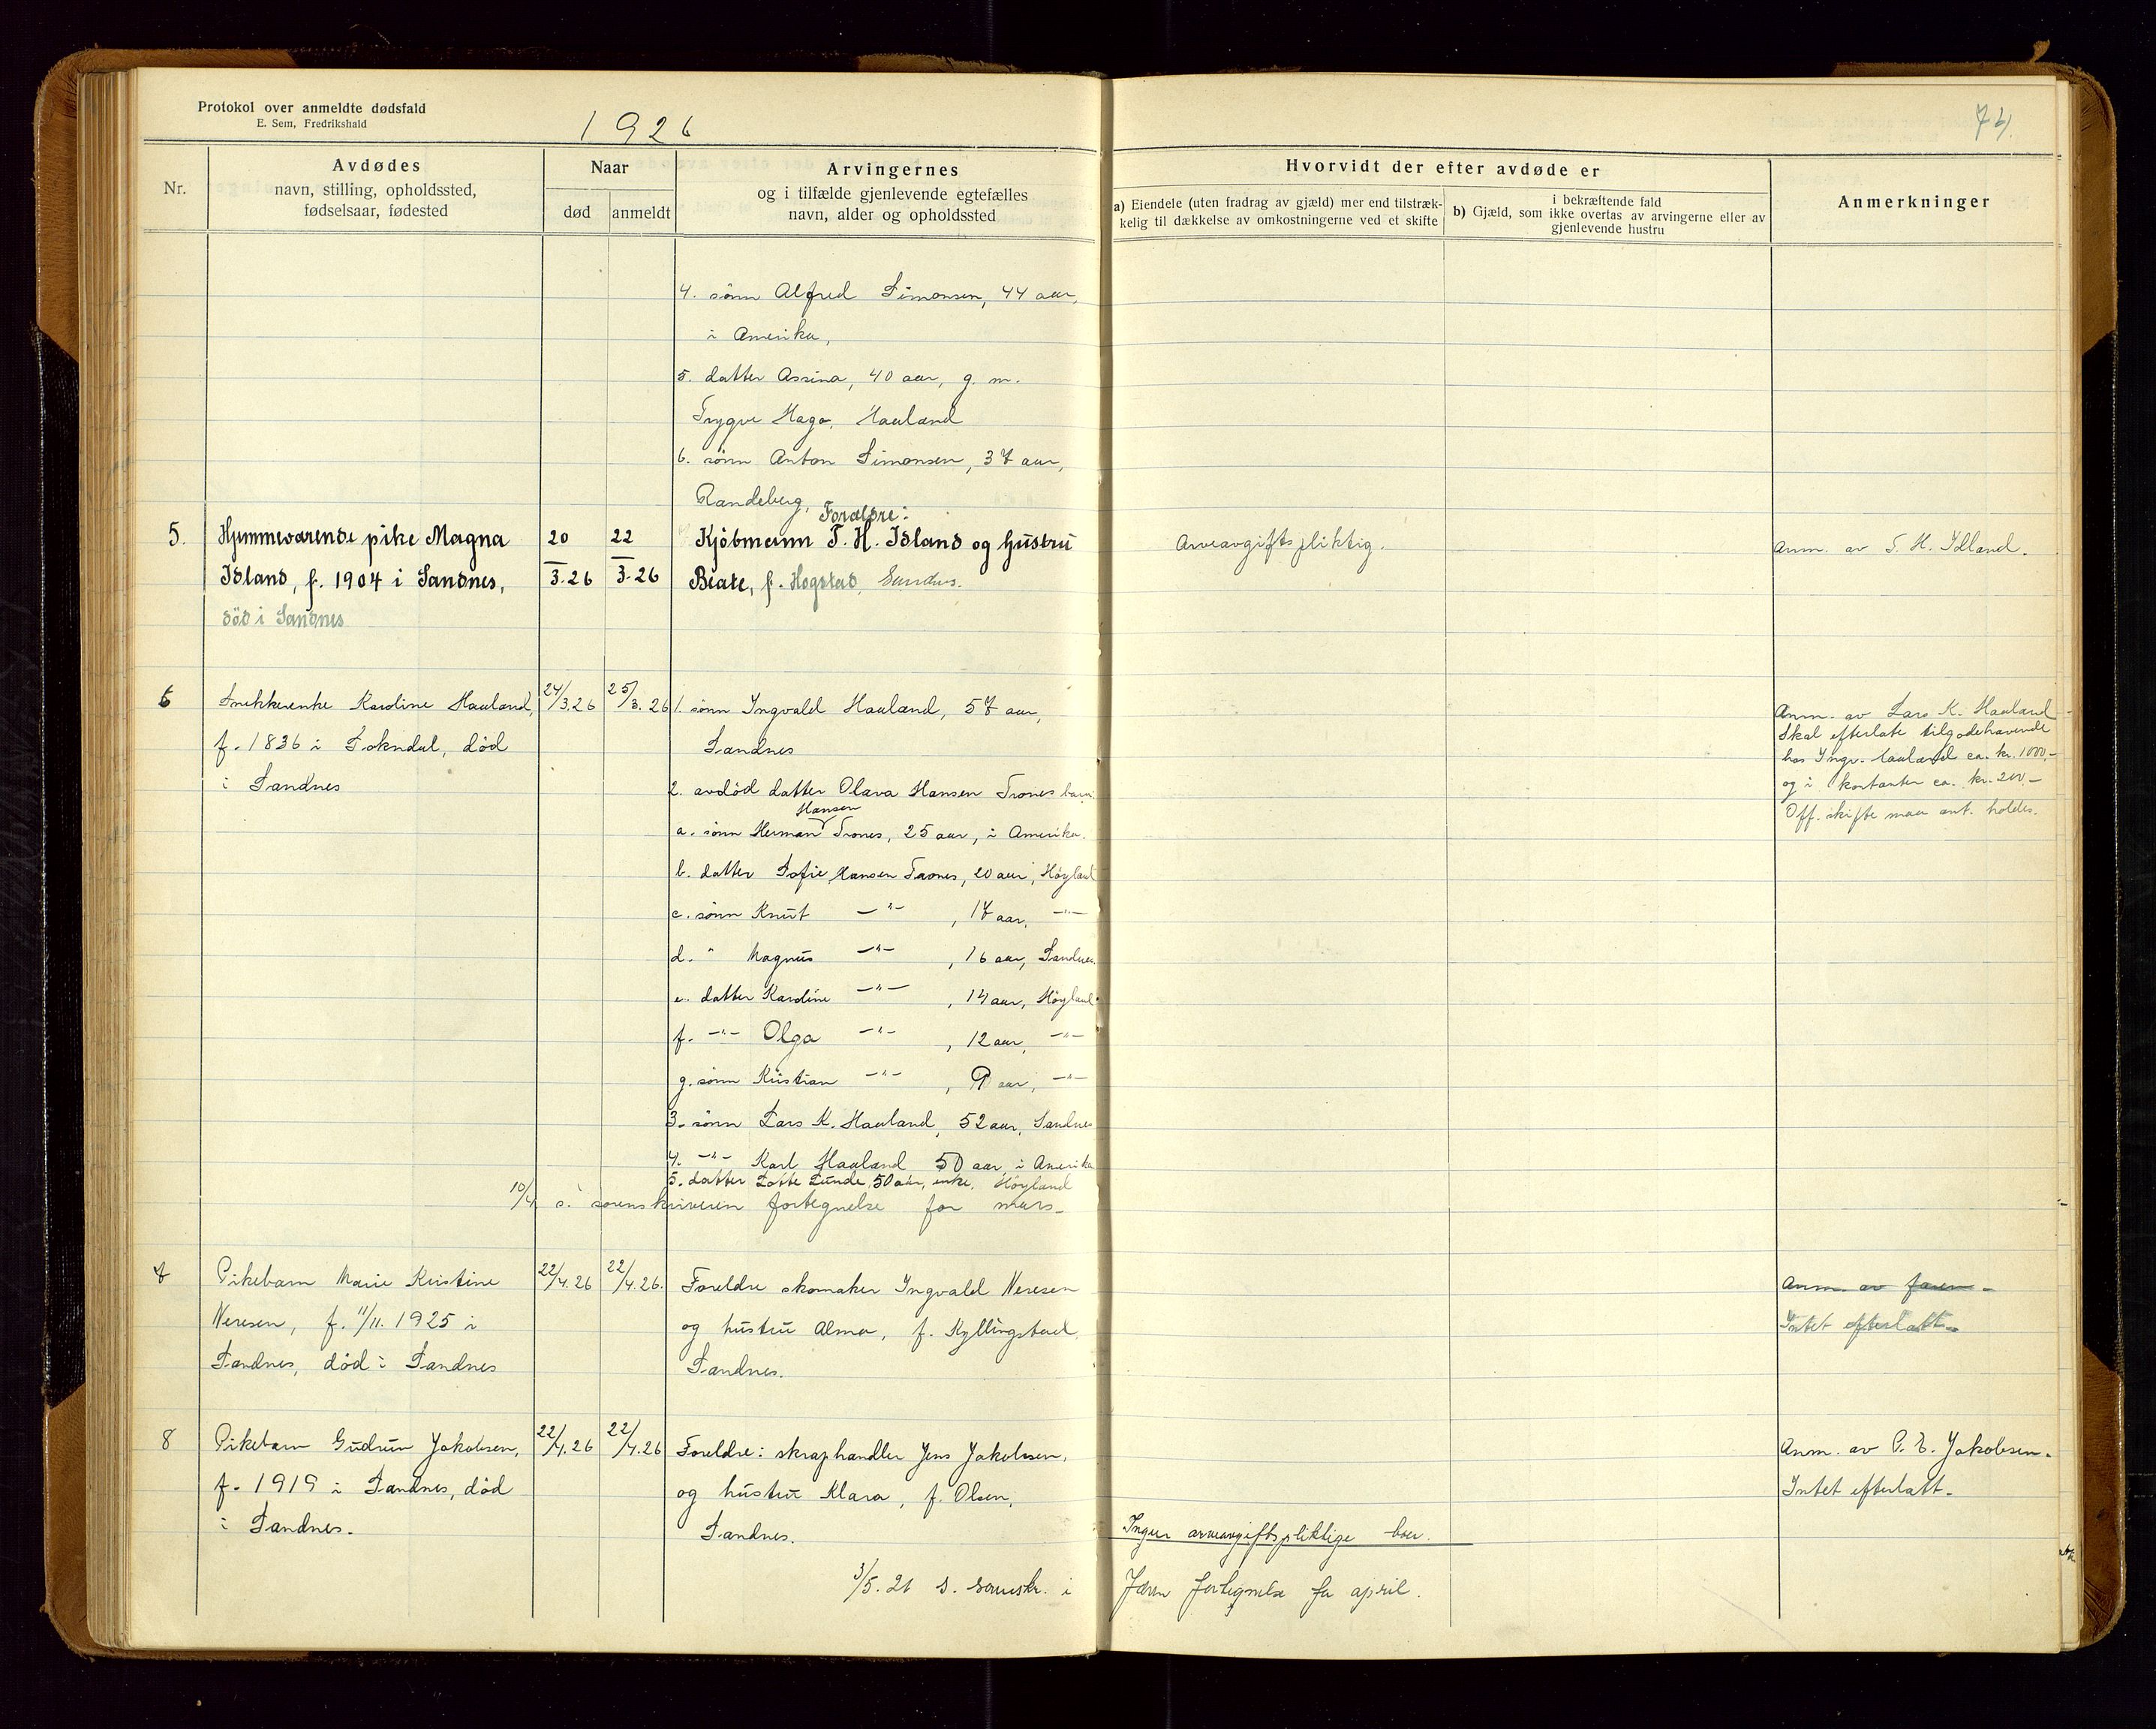 Protokol over anmeldte dødsfald
E. Sem, Fredrikshald
1926
74
Nr.
Avdødes
navn, stilling, opholdssted,
fødselsaar, fødested
Naar
død
anmeldt
Arvingernes
og i tilfælde gjenlevende egtefælles
navn, alder og opholdssted
Hvorvidt der efter avdøde er
a) Eiendele (uten fradrag av gjæld) mer end tilstræk-
kelig til dækkelse av omkostningerne ved et skifte
i bekræftende fald
b) Gjæld, som ikke overtas av arvingerne eller av
gjenlevende hustru
Anmerkninger
4. sönn Alfred Simonsen, 44 aar,
i Amerika,
5. datter Assina, 40 aar, g. m.
Trygve Haga, Haaland
6. sönn Anton Simonsen, 37 aar,
Randeberg,
5. Hjemmeværende pike Magna
Idland, f. 1904 i Sandnes,
död i Sandnes
20/3.26
22/3.26
Foreldre:
Kjöbmann T. H. Idland og hustru
Beate, f. Hogstad, Sandnes.
Arveavgiftspliktig.
Anm. av T. H. Idland.
6 Snekkerenke Karoline Haaland,
f. 1836 i Sokndal, död
i Sandnes
24/3.26
25/3.26
1. sönn Ingvald Haaland, 57 aar,
Sandnes
2. avdöd datter Olava Hansen Trones barn:
a. sönn Herman Hansen Trones, 25 aar, i Amerika.
b. datter Sofie Hansen Trones, 20 aar, Höyland
c. sönn Knut -"- , 17 aar, -"-
d. " Magnus -"- , 16 aar, Sandnes.
e. datter Karoline -"- , 14 aar, Höyland
f. -"- Olga -"- , 12 aar, -"-
g. sönn Kristian -"- , 9 aar, -"-
3. sönn Lars K. Haaland, 52 aar, Sandnes
4. -"- Karl Haaland 50 aar, i Amerika
5. datter Lotte Lunde, 50 aar, enke, Höyland
Anm. av Lars K. Haaland
Skal efterlate tilgodehavende
hos Ingv. Haaland ca. kr. 1000,-
og i kontanter ca. kr. 200-
Off. skifte maa ant. holdes.
10/4 s. sorenskriveren fortegnelse for mars-
7 Pikebarn Marie Kristine
Neresen, f. 11/11. 1925 i
Sandnes, död i Sandnes
22/4.26
22/4.26.
Foreldre skomaker Ingvald Neresen
og hustru Alma, f. Kyllingstad,
Sandnes.
Anm. av faren-
Intet efterlatt-
8 Pikebarn Gudrun Jakobsen,
f. 1919 i Sandnes, död
i Sandnes.
22/4.26
22/4.26
Foreldre: skraphandler Jens Jakobsen,
og hustru Klara, f. Olsen,
Sandnes.
Anm. av P. E. Jakobsen.
Intet efterlatt-
Ingen arveavgiftspliktige boer.
3/5.26 s. sorenskr. i Jæren fortegnelse for april.